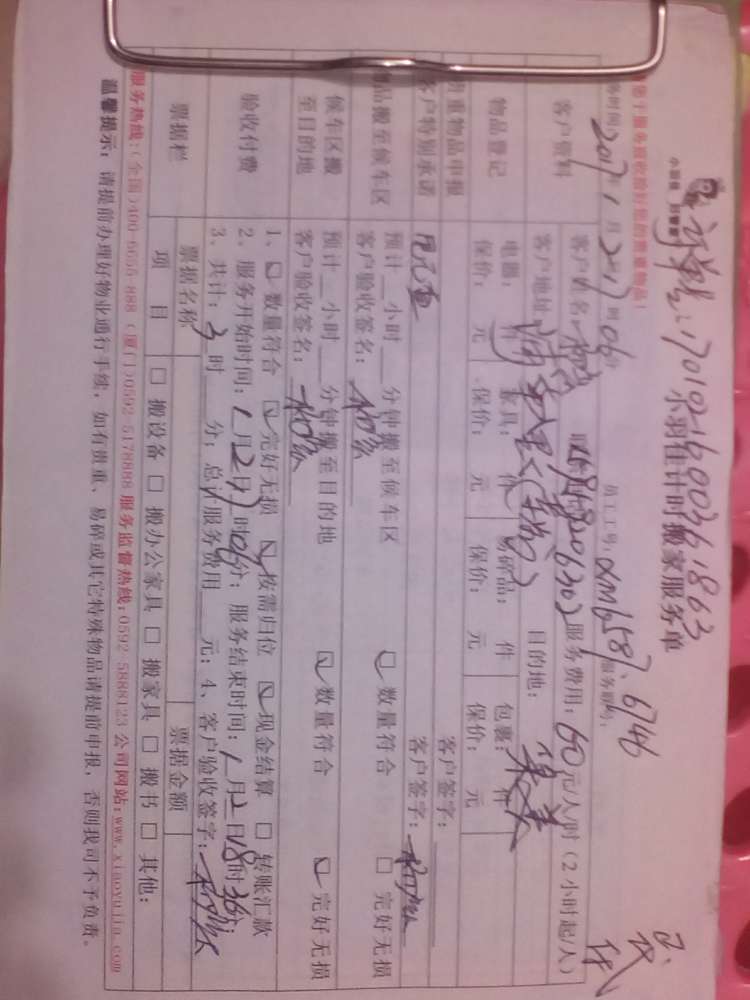 订单号:1701021600361863
小羽佳计时搬家服务单
2017年1月2日17时06分 员工工号:XM6587、6746
客户资料
客户姓名: 服务费用:60元/人/时(2小时起/人)
客户地址: 目的地:
物品登记
电器: 件 家具: 件 易碎品: 件 包裹: 件
保价: 元 保价: 元 保价: 元 保价: 元
贵重物品申报 客户签字:
客户特别承诺 客户签字:
物品搬至候车区
预计__小时__分钟搬至候车区 □数量符合 □完好无损
客户验收签名:
候车区搬至目的地
预计__小时__分钟搬至目的地 □数量符合 □完好无损
客户验收签名:
验收付费
1、□数量符合 □完好无损 □按需归位 □现金结算 □转账汇款
2、服务开始时间:1月2日17时06分;服务结束时间:1月2日18时36分;
3、共计:3时__分;总计服务费用__元;4、客户验收签字:
票据栏
票据名称 票据金额
项目 □搬设备 □搬办公家具 □搬家具 □搬书 □其他:
服务热线:(全国)400-6655-888 (厦门)0592-5178888 服务监督热线:0592 5888123 公司网站:www.xiaoyujia.com
温馨提示:请提前办理好物业通行手续,如有贵重、易碎或其它特殊物品请提前申报,否则我司不予负责。